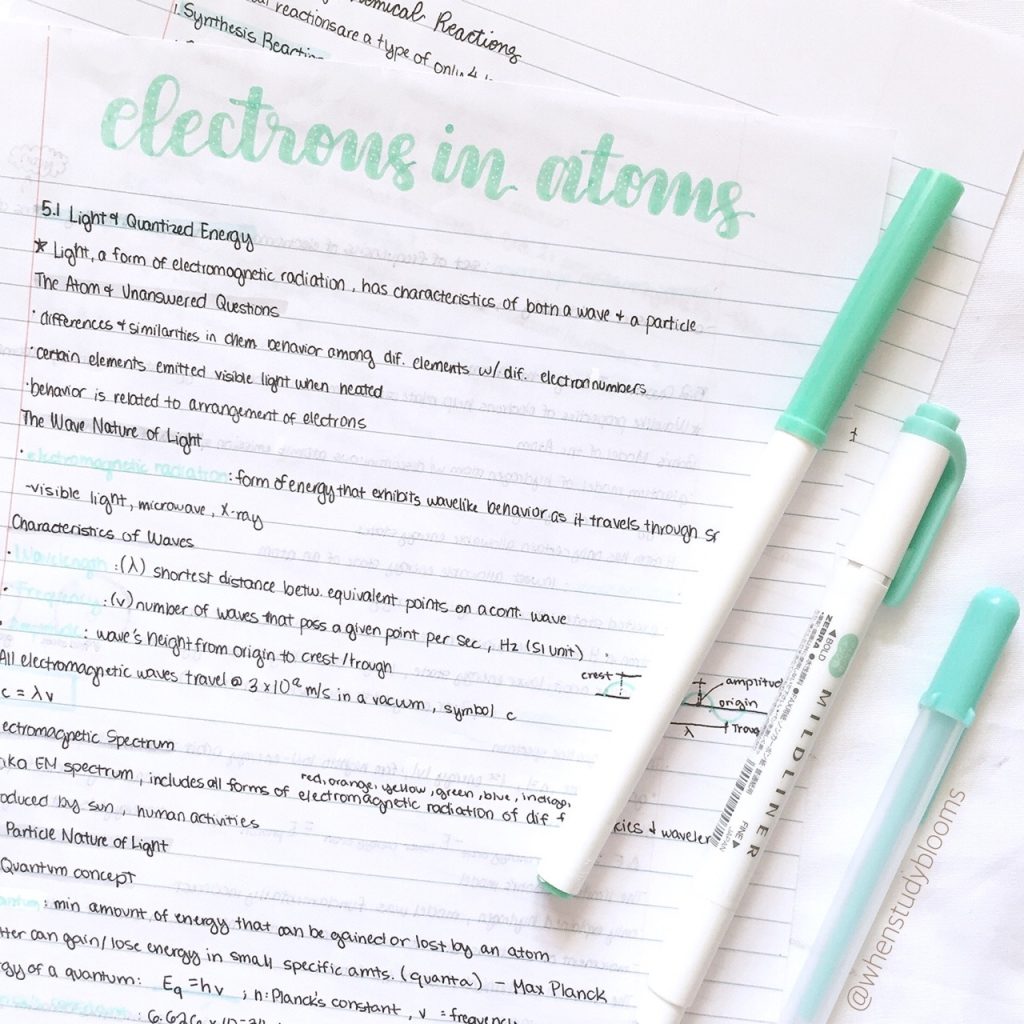 emical Reactions
reactions are a type of only 1
1. Synthesis Reactio
electrons in atoms
5.1 Light & Quantized Energy
* Light, a form of electromagnetic radiation, has characteristics of both a wave & a particle
The Atom & Unanswered Questions
· differences & similarities in chem behavior among dif. elements w/ dif. electron numbers
· certain elements emitted visible light when heated
· behavior is related to arrangement of electrons
The Wave Nature of Light
· electromagnetic radiation: form of energy that exhibits wavelike behavior as it travels through sp
-visible light, microwave, x-ray
Characteristics of Waves
· Wavelength: (λ) shortest distance betw. equivalent points on a cont. wave
· Frequency: (v) number of waves that pass a given point per sec, Hz (SI unit)
· Amplitude: wave's height from origin to crest/trough
All electromagnetic waves travel @ 3 x 10⁸ m/s in a vacuum, symbol c
c = λv
crest
amplitud
origin
λ
trou
ectromagnetic Spectrum
aka EM spectrum, includes all forms of electromagnetic radiation of dif f
red, orange, yellow, green, blue, indigo,
cies & waveler
oduced by sun, human activities
Particle Nature of Light
Quantum concept
antum: min amount of energy that can be gained or lost by an atom
tter can gain/lose energy in small specific amts. (quanta) - Max Planck
rgy of a quantum: Eq = hv ; h: Planck's constant, v = frequenc
: 6.626 x 10-34
BOLD
ZEBRA
MILDLINER
FINE
JAPAN
@whenstudyblooms